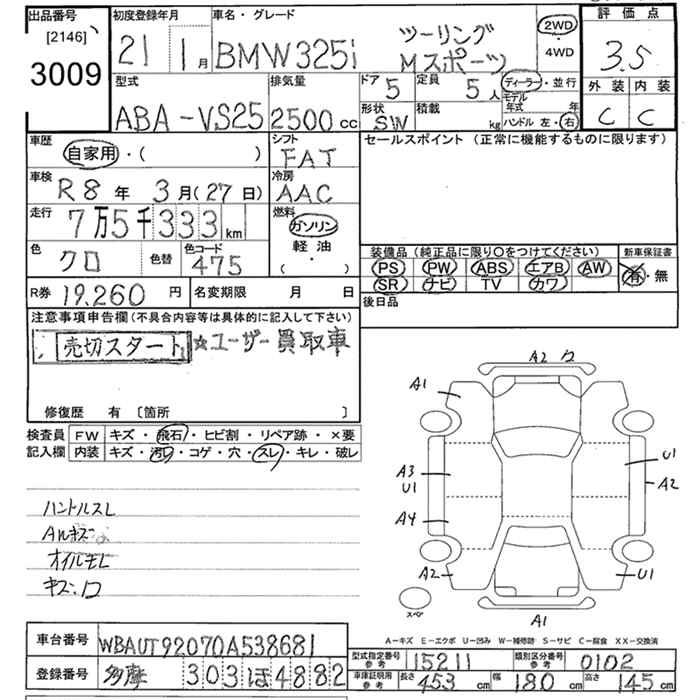 出品番号
[2146]
3009
初度登録年月
21 1月
車名・グレード
BMW325i
ツーリング
Mスポーツ
2WD
・
4WD
評価点
3.5
外装 内装
C C
型式
ABA-VS25
排気量
2500cc
ドア
5
定員
5人
形状
SW
積載
kg
ディーラー・並行
モデル年式 年
ハンドル 左・右
車歴
自家用・( )
シフト
FAT
セールスポイント (正常に機能するものに限ります)
車検
R8年3月(27日)
冷房
AAC
走行
7万5千333km
燃料
ガソリン
軽油
( ・ )
色
クロ
色替
色コード
475
装備品 (純正品に限り○をつけてください)
新車保証書
PS PW ABS エアB AW
有・無
SR ナビ TV カワ
R券 19,260円
名変期限 月 日
後日品
注意事項申告欄(不具合内容等は具体的に記入して下さい)
売切スタート ☆ユーザー買取車
修復歴 有 〔箇所 〕
検査員
記入欄
FW キズ・飛石・ヒビ割・リペア跡・×要
内装 キズ・汚レ・コゲ・穴・スレ・キレ・破レ
ハンドルスレ
Aルキズ
オイルモレ
A2 ワ
A1
A3
U1
A4
A2
U1
A2
U1
スペア
A1
A-キズ E-エクボ U-凹み W-補修跡 S-サビ C-腐食 XX-交換済
車台番号 WBAUT92070A538681
登録番号 多摩 303 ほ 4882
型式指定番号
参考
15211
類別区分番号
参考
0102
車庫証明用
参考
長さ 453cm 幅 180cm 高さ 145cm